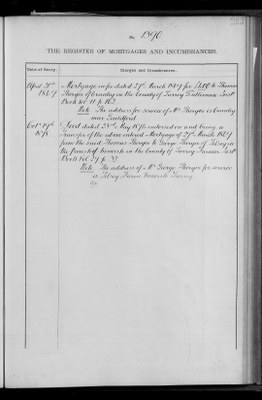 No. 1890.
THE REGISTER OF MORTGAGES AND INCUMBRANCES.
Date of Entry.
Charges and Incumbrances.
April 21st
1869
Mortgage in fee dated 27th March 1869 for £1,000 to Thomas
Thorpe of Cranley in the County of Surrey
Book Vol. 11 p. 163
Note The address for service of Mr Thorpe is Cranley
near Guildford
Octr 19th
1878
Deed dated 23rd May 1876 indorsed on and being a
Transfer of the above entered Mortgage of 27th March 1869
from the said Thomas Thorpe to George Thorpe of Tilsey in
the parish of Wonersh in the County of Surrey Farmer
Deeds Vol. 29 p. 39
Note The address of Mr George Thorpe for service
is Tilsey Farm Wonersh Surrey